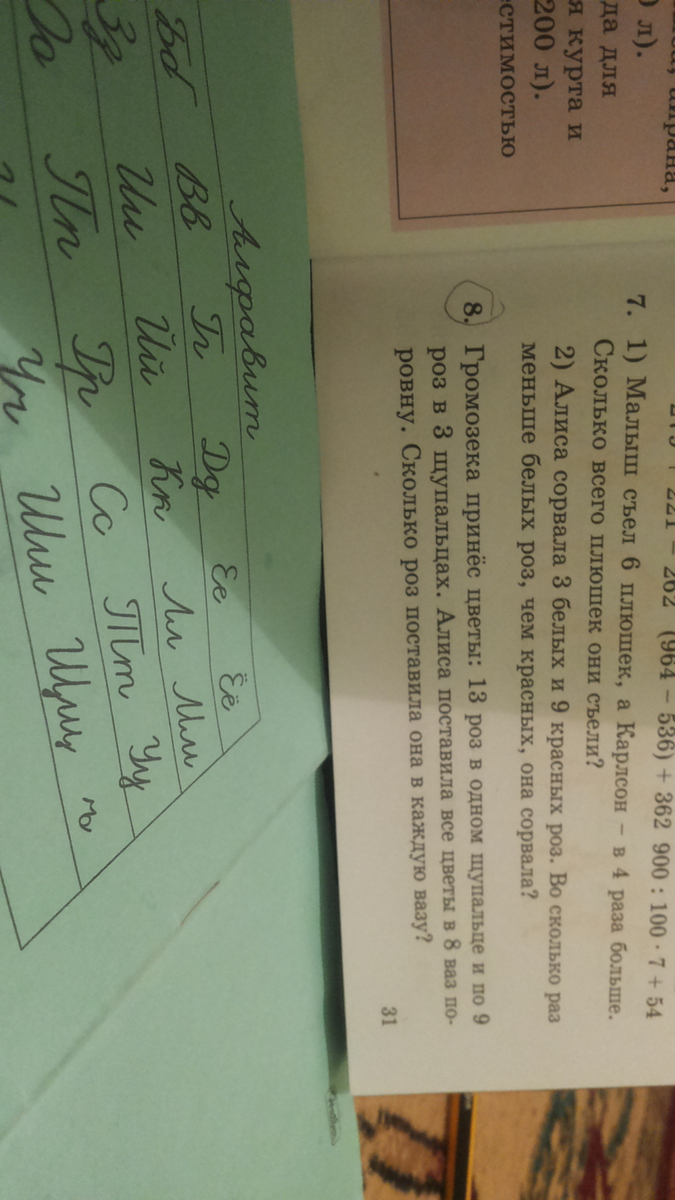 л).
да для
я курта и
200 л).
стимостью
(964 – 536) + 362 900 : 100 · 7 + 54
7. 1) Малыш съел 6 плюшек, а Карлсон – в 4 раза больше.
Сколько всего плюшек они съели?
2) Алиса сорвала 3 белых и 9 красных роз. Во сколько раз
меньше белых роз, чем красных, она сорвала?
8. Громозека принёс цветы: 13 роз в одном щупальце и по 9
роз в 3 щупальцах. Алиса поставила все цветы в 8 ваз по-
ровну. Сколько роз поставила она в каждую вазу?
31
Алфавит
Бб Вв Гг Дд Ее Ёё
Зз Ии Йй Кк Лл Мм
Оо Пп Рр Сс Тт Уу
Чч Шш Щщ ъ